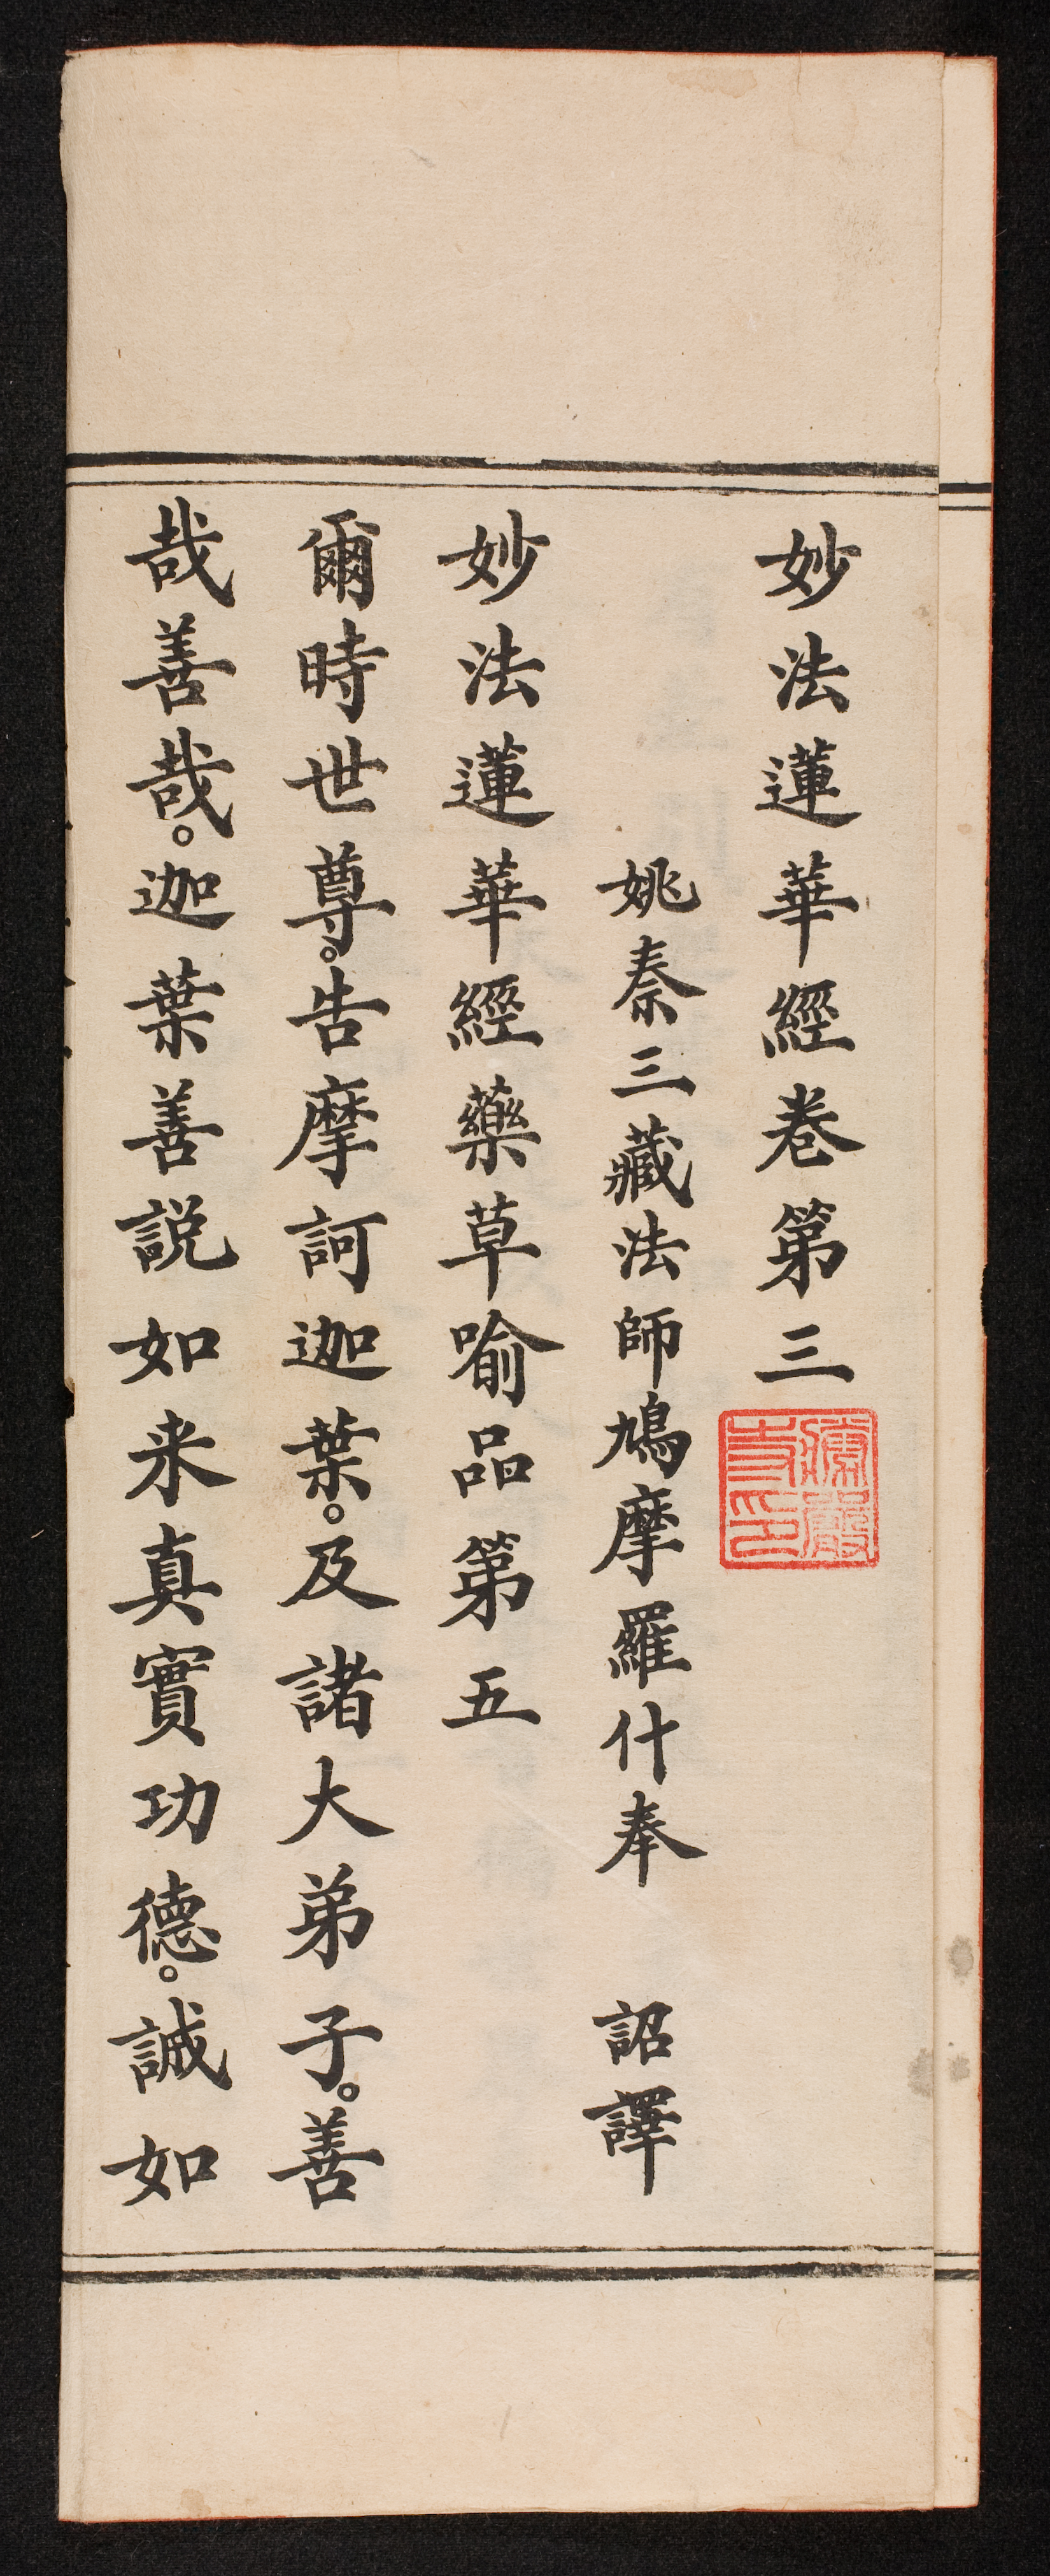 妙法蓮華經卷第三
姚秦三藏法師鳩摩羅什奉　詔譯
妙法蓮華經藥草喻品第五
爾時世尊。告摩訶迦葉。及諸大弟子。善
哉善哉。迦葉善説如来真實功德。誠如